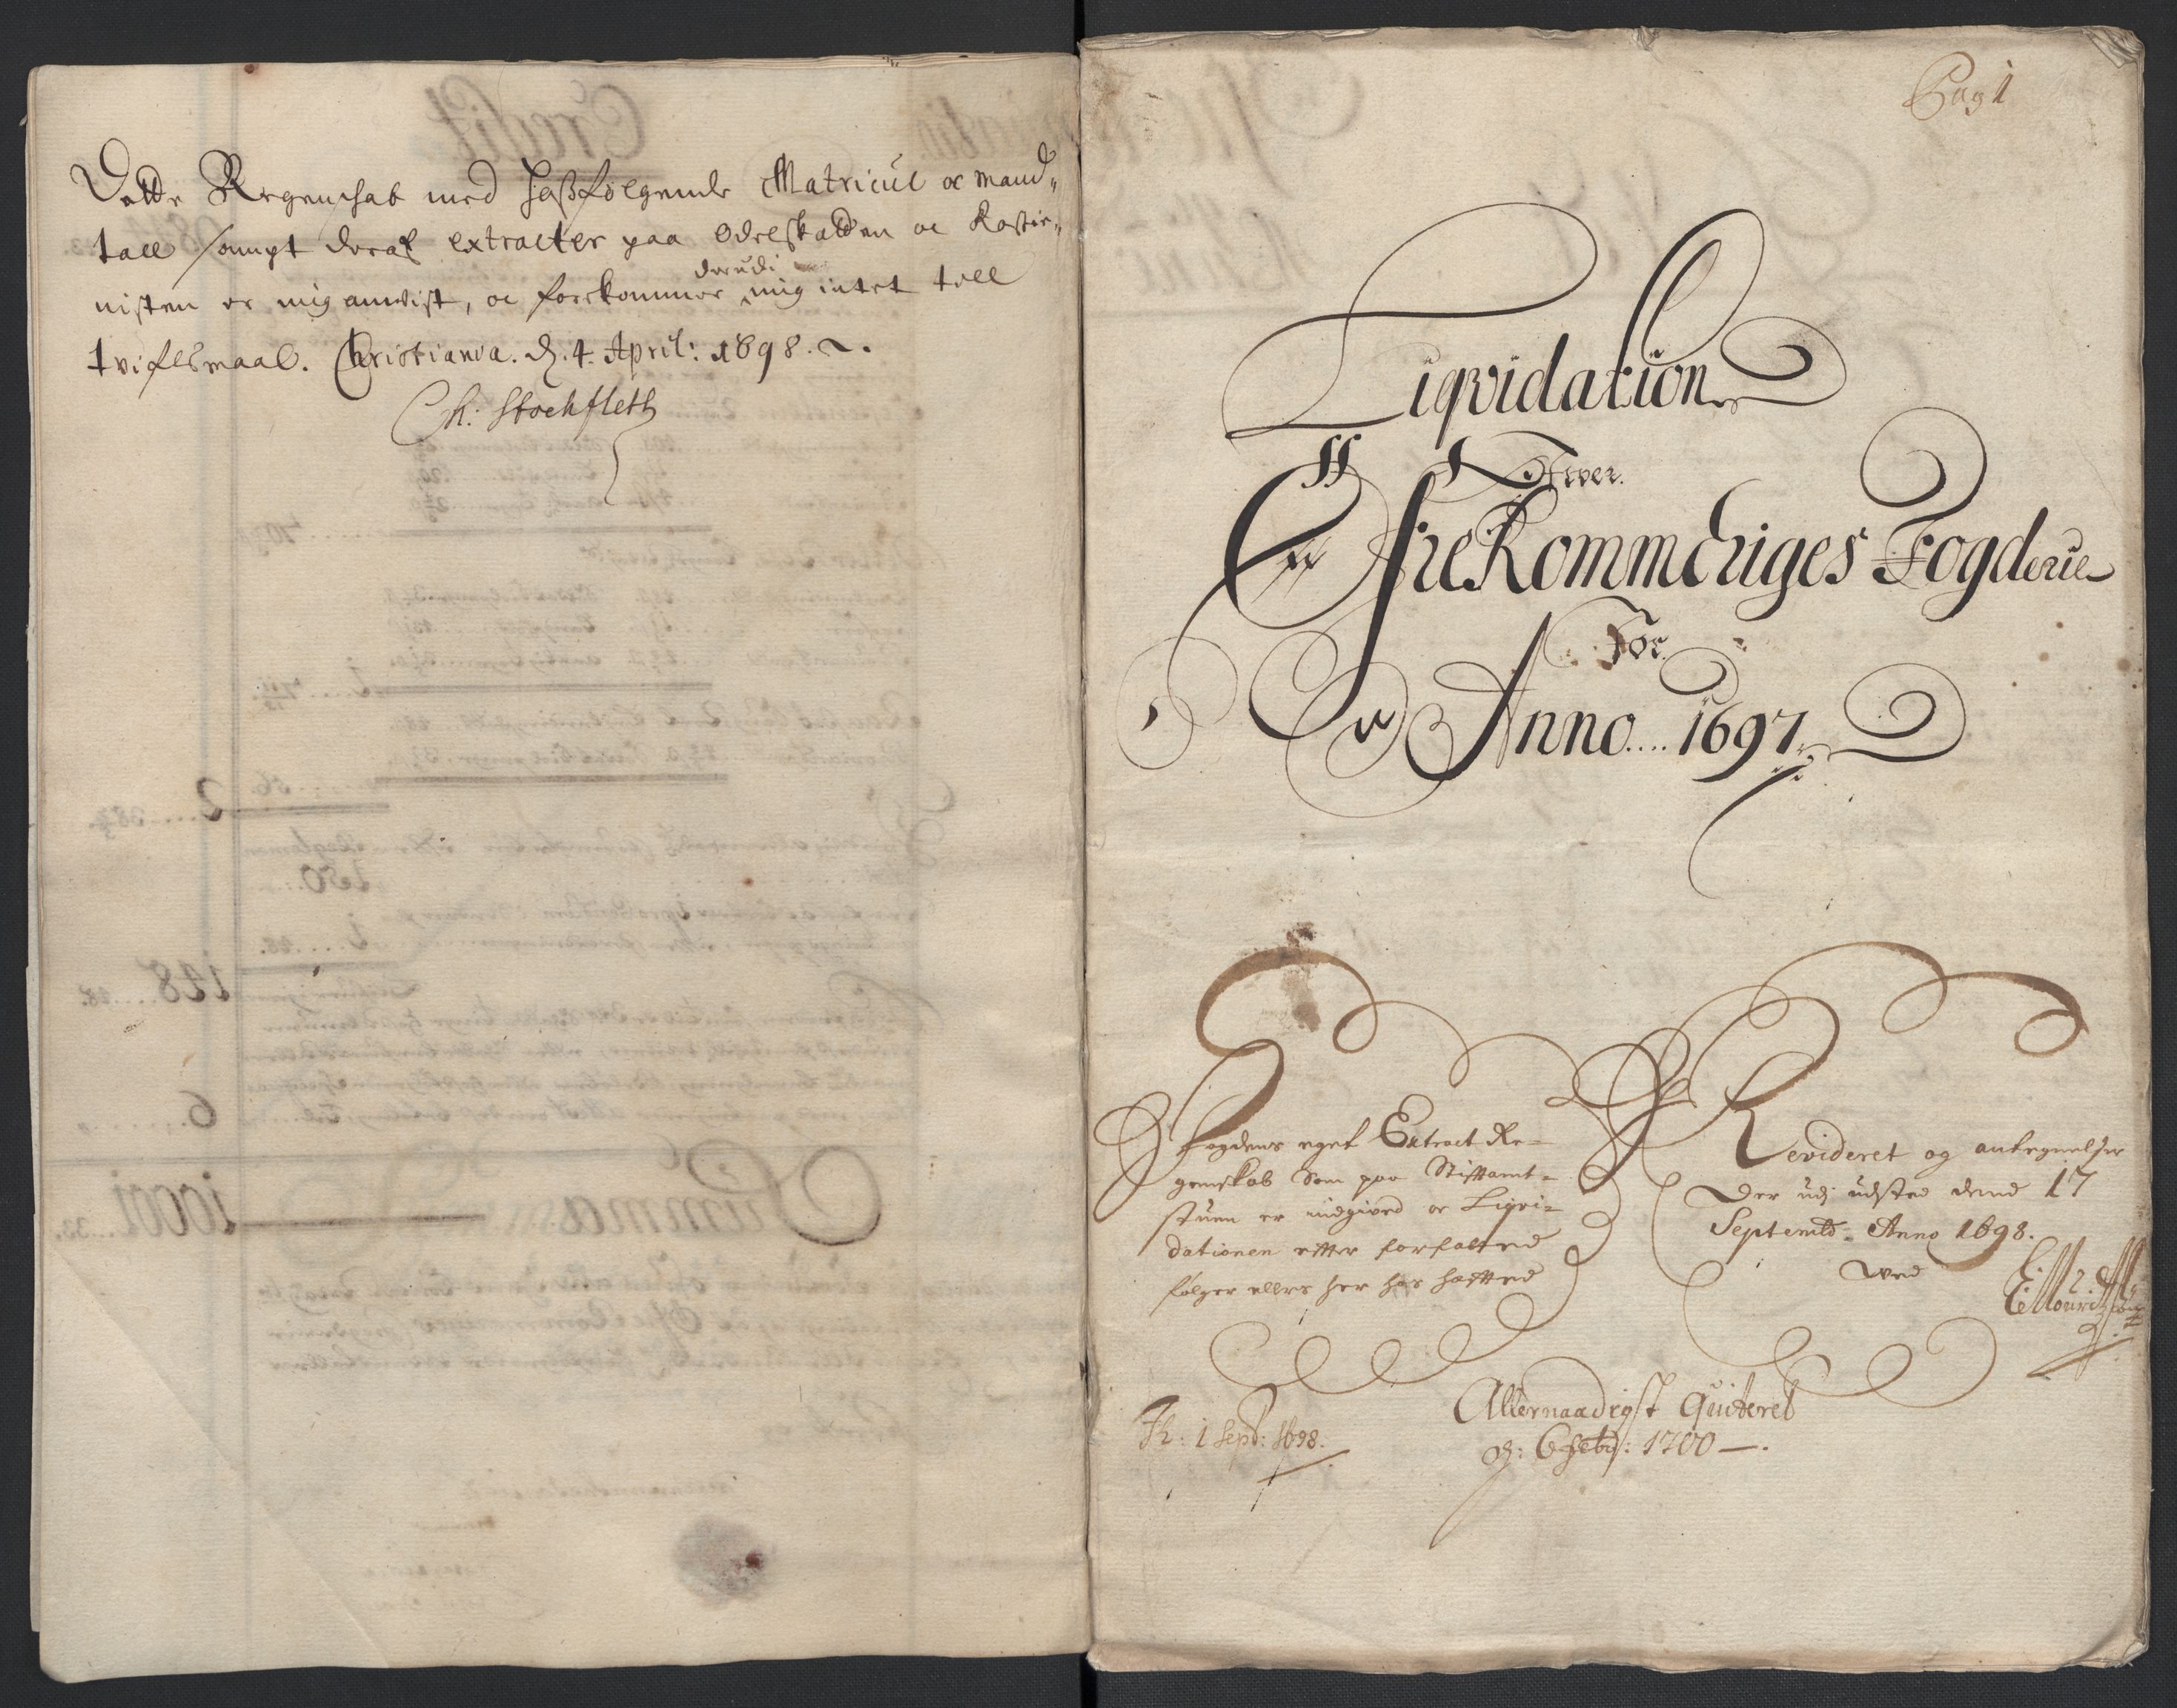 Dette Regenschab med hosfølgende Matricul oc mand„
tall sampt deraf extracter paa Odelskatten oc Roster„
nisten er mig anvist, oc forekommer derudi mig intet till
tvifelsmaal. Christiania. d. 4. April: 1698.
Ch: Stockfleth
Pag 1
Liqvidation
Ofwer.
Øfre Rommeriges Fogderie
For
Anno.... 1697
Fogdens eget Extract Re=
genskab som paa Stiftamt=
stuen er indgived oc Liqvi=
dationen efter forfatted
følger ellers her hos hæfted
Revideret og antegnelser
Der udj udsted dend 17
Septemb. Anno 1698.
ved
Fl: 1 Sept: 1698.
Allernaadigst Quiteret
d: 6 Feb: 1700 —.